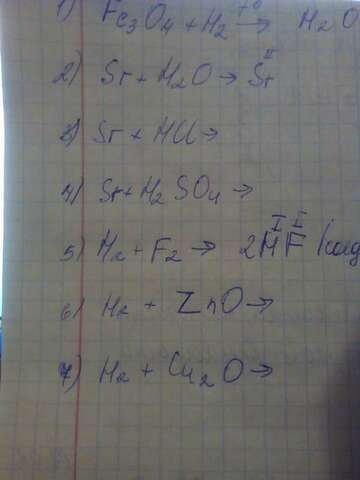 1) Fe₃O₄ + H₂ →(t°) H₂O
2) Sr + H₂O → Sr^II
3) Sr + HCl →
4) Sr + H₂SO₄ →
5) H₂ + F₂ → 2H^I F^I
6) H₂ + ZnO →
7) H₂ + Cu₂O →